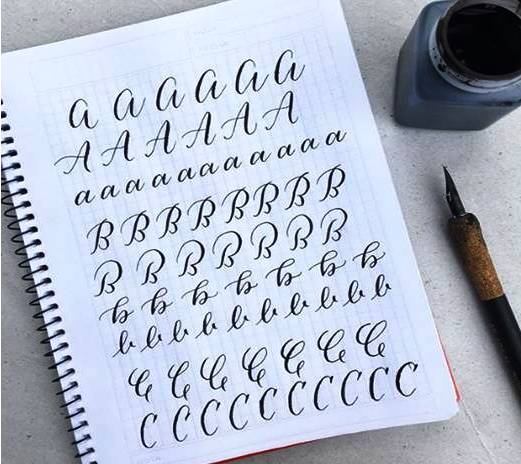 A A A A A A
A A A A A A
a a a a a a a a a a a
B B B B B B B B
B B B B B B B
b b b b b b b
b b b b b b b b b b
C C C C C C C
C C C C C C C C C C